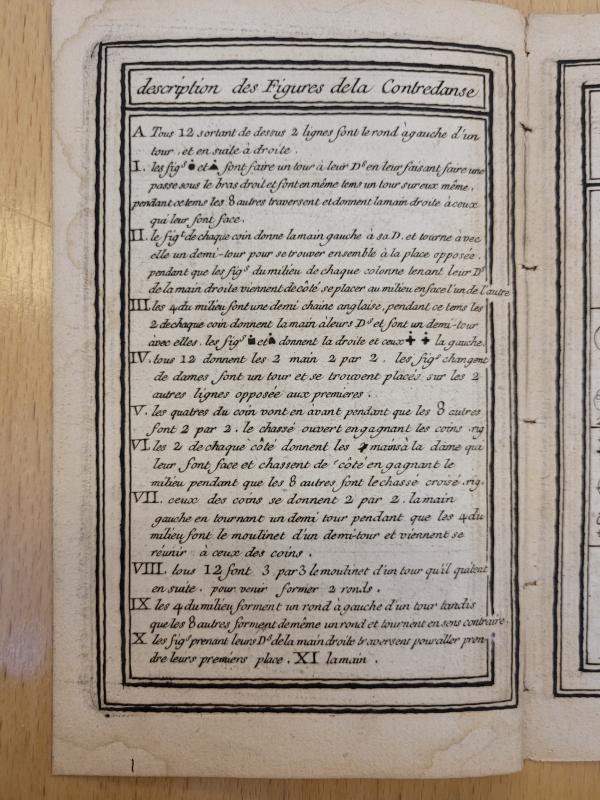 description des Figures dela Contredanse
A Tous 12 sortant de dessus 2 lignes font le rond à gauche d'un
tour, et en suite à droite.
I. les figs et font faire un tour à leur Ds en leur faisant faire une
passe sous le bras droit et font en même tems un tour sur eux même,
pendant ce tems les 8 autres traversent et donnent la main droite à ceux
qui leur font face.
II. le figt de chaque coin donne la main gauche à sa D. et tourne avec
elle un demi-tour pour se trouver ensemble à la place opposée,
pendant que les figs du milieu de chaque colonne tenant leur Ds
de la main droite viennent de côté se placer au milieu en face l'un de l'autre
III. les 4 du milieu font une demi chaine anglaise, pendant ce tems les
2 de chaque coin donnent la main à leurs Ds et font un demi-tour
avec elles. les figs et donnent la droite et ceux la gauche
IV. tous 12 donnent les 2 main 2 par 2. les figs changent
de dames font un tour et se trouvent placés sur les 2
autres lignes opposée aux premieres.
V. les quatres du coin vont en avant pendant que les 8 autres
font 2 par 2. le chassé ouvert en gagnant les coins. rig
VI. les 2 de chaque côté donnent les mains à la dame qui
leur font face et chassent de côté en gagnant le
milieu pendant que les 8 autres font le chassé croisé. rig.
VII. ceux des coins se donnent 2 par 2. la main
gauche en tournant un demi tour pendant que les 4 du
milieu font le moulinet d'un demi-tour et viennent se
réunir à ceux des coins.
VIII. tous 12 font 3 par 3 le moulinet d'un tour qu'il quitent
en suite. pour venir former 2 ronds.
IX les 4 du milieu forment un rond à gauche d'un tour tandis
que les 8 autres forment de même un rond et tournent en sens contraire.
X les figs prenant leurs Ds de la main droite traversent pour aller pren-
dre leurs premiers place. XI la main.
1